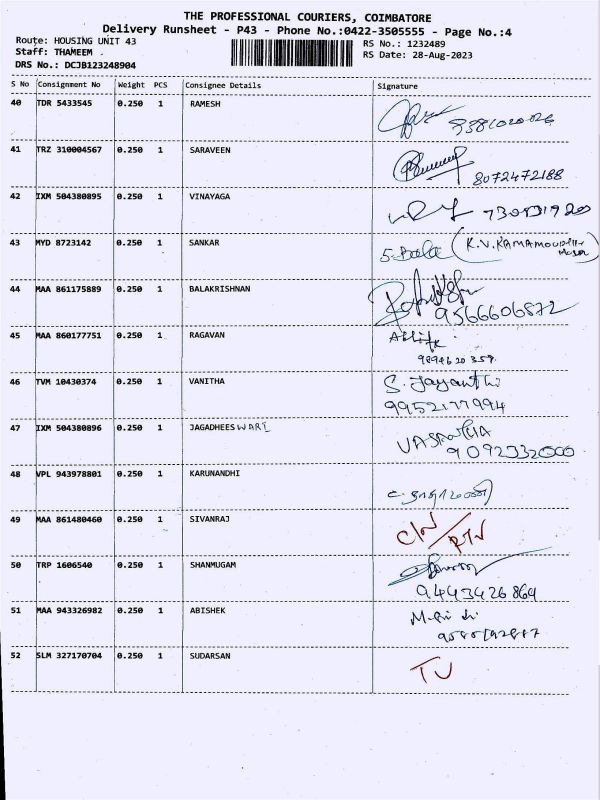 THE PROFESSIONAL COURIERS, COIMBATORE
Delivery Runsheet - P43 - Phone No.:0422-3505555 - Page No.:4
Route: HOUSING UNIT 43 RS No.: 1232489
Staff: THAMEEM . RS Date: 28-Aug-2023
DRS No.: DCJB123248904
S No Consignment No Weight PCS Consignee Details Signature
40 TDR 5433545 0.250 1 RAMESH
41 TRZ 310004567 0.250 1 SARAVEEN
8072472188
42 IXM 504380895 0.250 1 VINAYAGA
43 MYD 8723142 0.250 1 SANKAR S. Bala
44 MAA 861175889 0.250 1 BALAKRISHNAN
9566606872
45 MAA 860177751 0.250 1 RAGAVAN
9894620359
46 TVM 10430374 0.250 1 VANITHA S. Jayanthi
9952177994
47 IXM 504380896 0.250 1 JAGADHEESWARI
9092332000
48 VPL 943978801 0.250 1 KARUNANDHI
49 MAA 861480460 0.250 1 SIVANRAJ C/N/RTN
50 TRP 1606540 0.250 1 SHANMUGAM
9443426864
51 MAA 943326982 0.250 1 ABISHEK
52 SLM 327170704 0.250 1 SUDARSAN TU